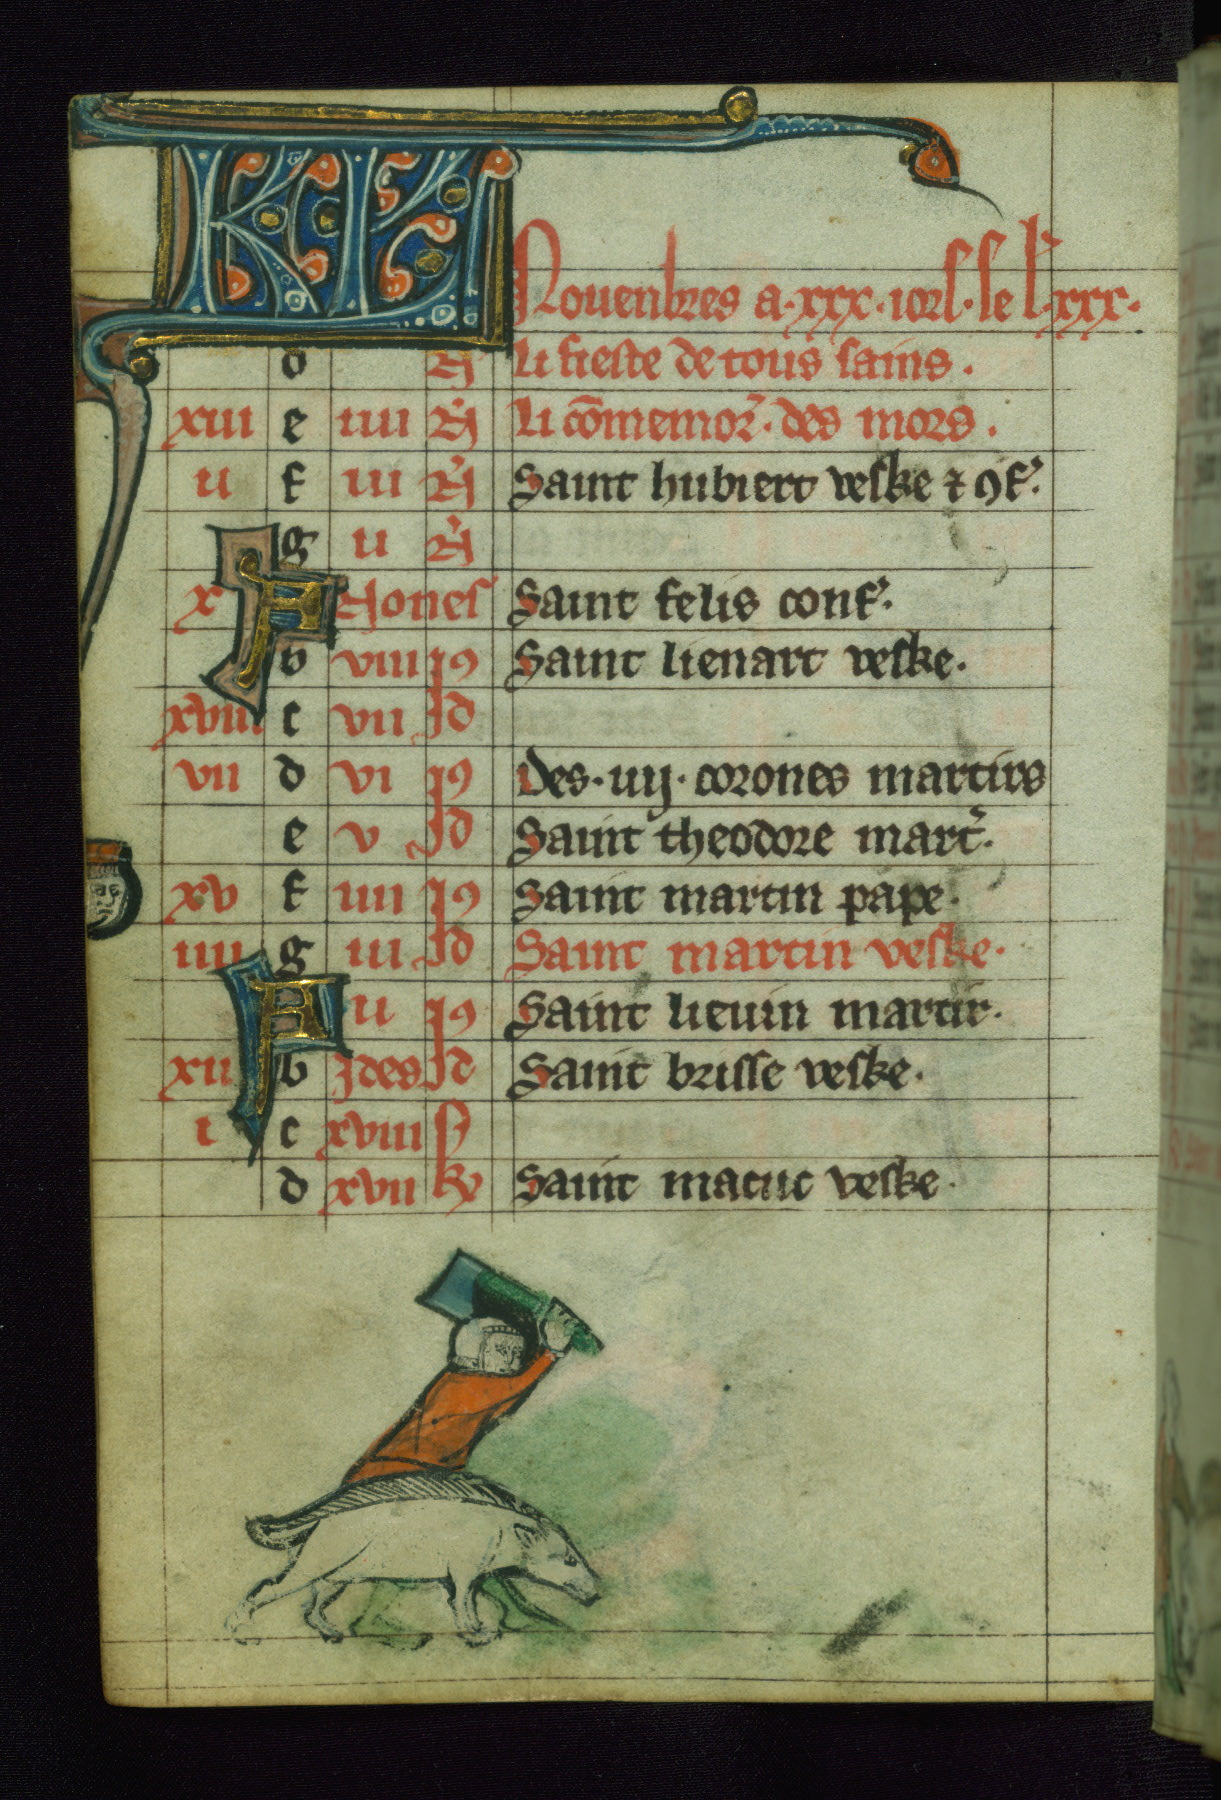 KL Nouenbres a·xxx·iorſ·ſe lˀ·xxx·
d N̄ li fieste de tous sains.
xiii e iiii N̄ li cōmemorˀ· des mors.
ii f iii N̄ Saint hubiert veske ⁊ ꝯfˀ.
g ii N̄
x A Nones Saint felis confˀ.
b viii jꝯ Saint lienart veske.
xviii. c vii jd
vii d vi jꝯ Des· iiij· corones martirs
e v jd Saint theodore martˀ.
xv f iiii jꝯ Saint martin pape.
iiii g iii jd Saint martin veske.
A ii jꝯ Saint lieuin martir.
xii b jdes jd Saint brisse veske.
i c xviii
d xvii kł Saint maciic veske.